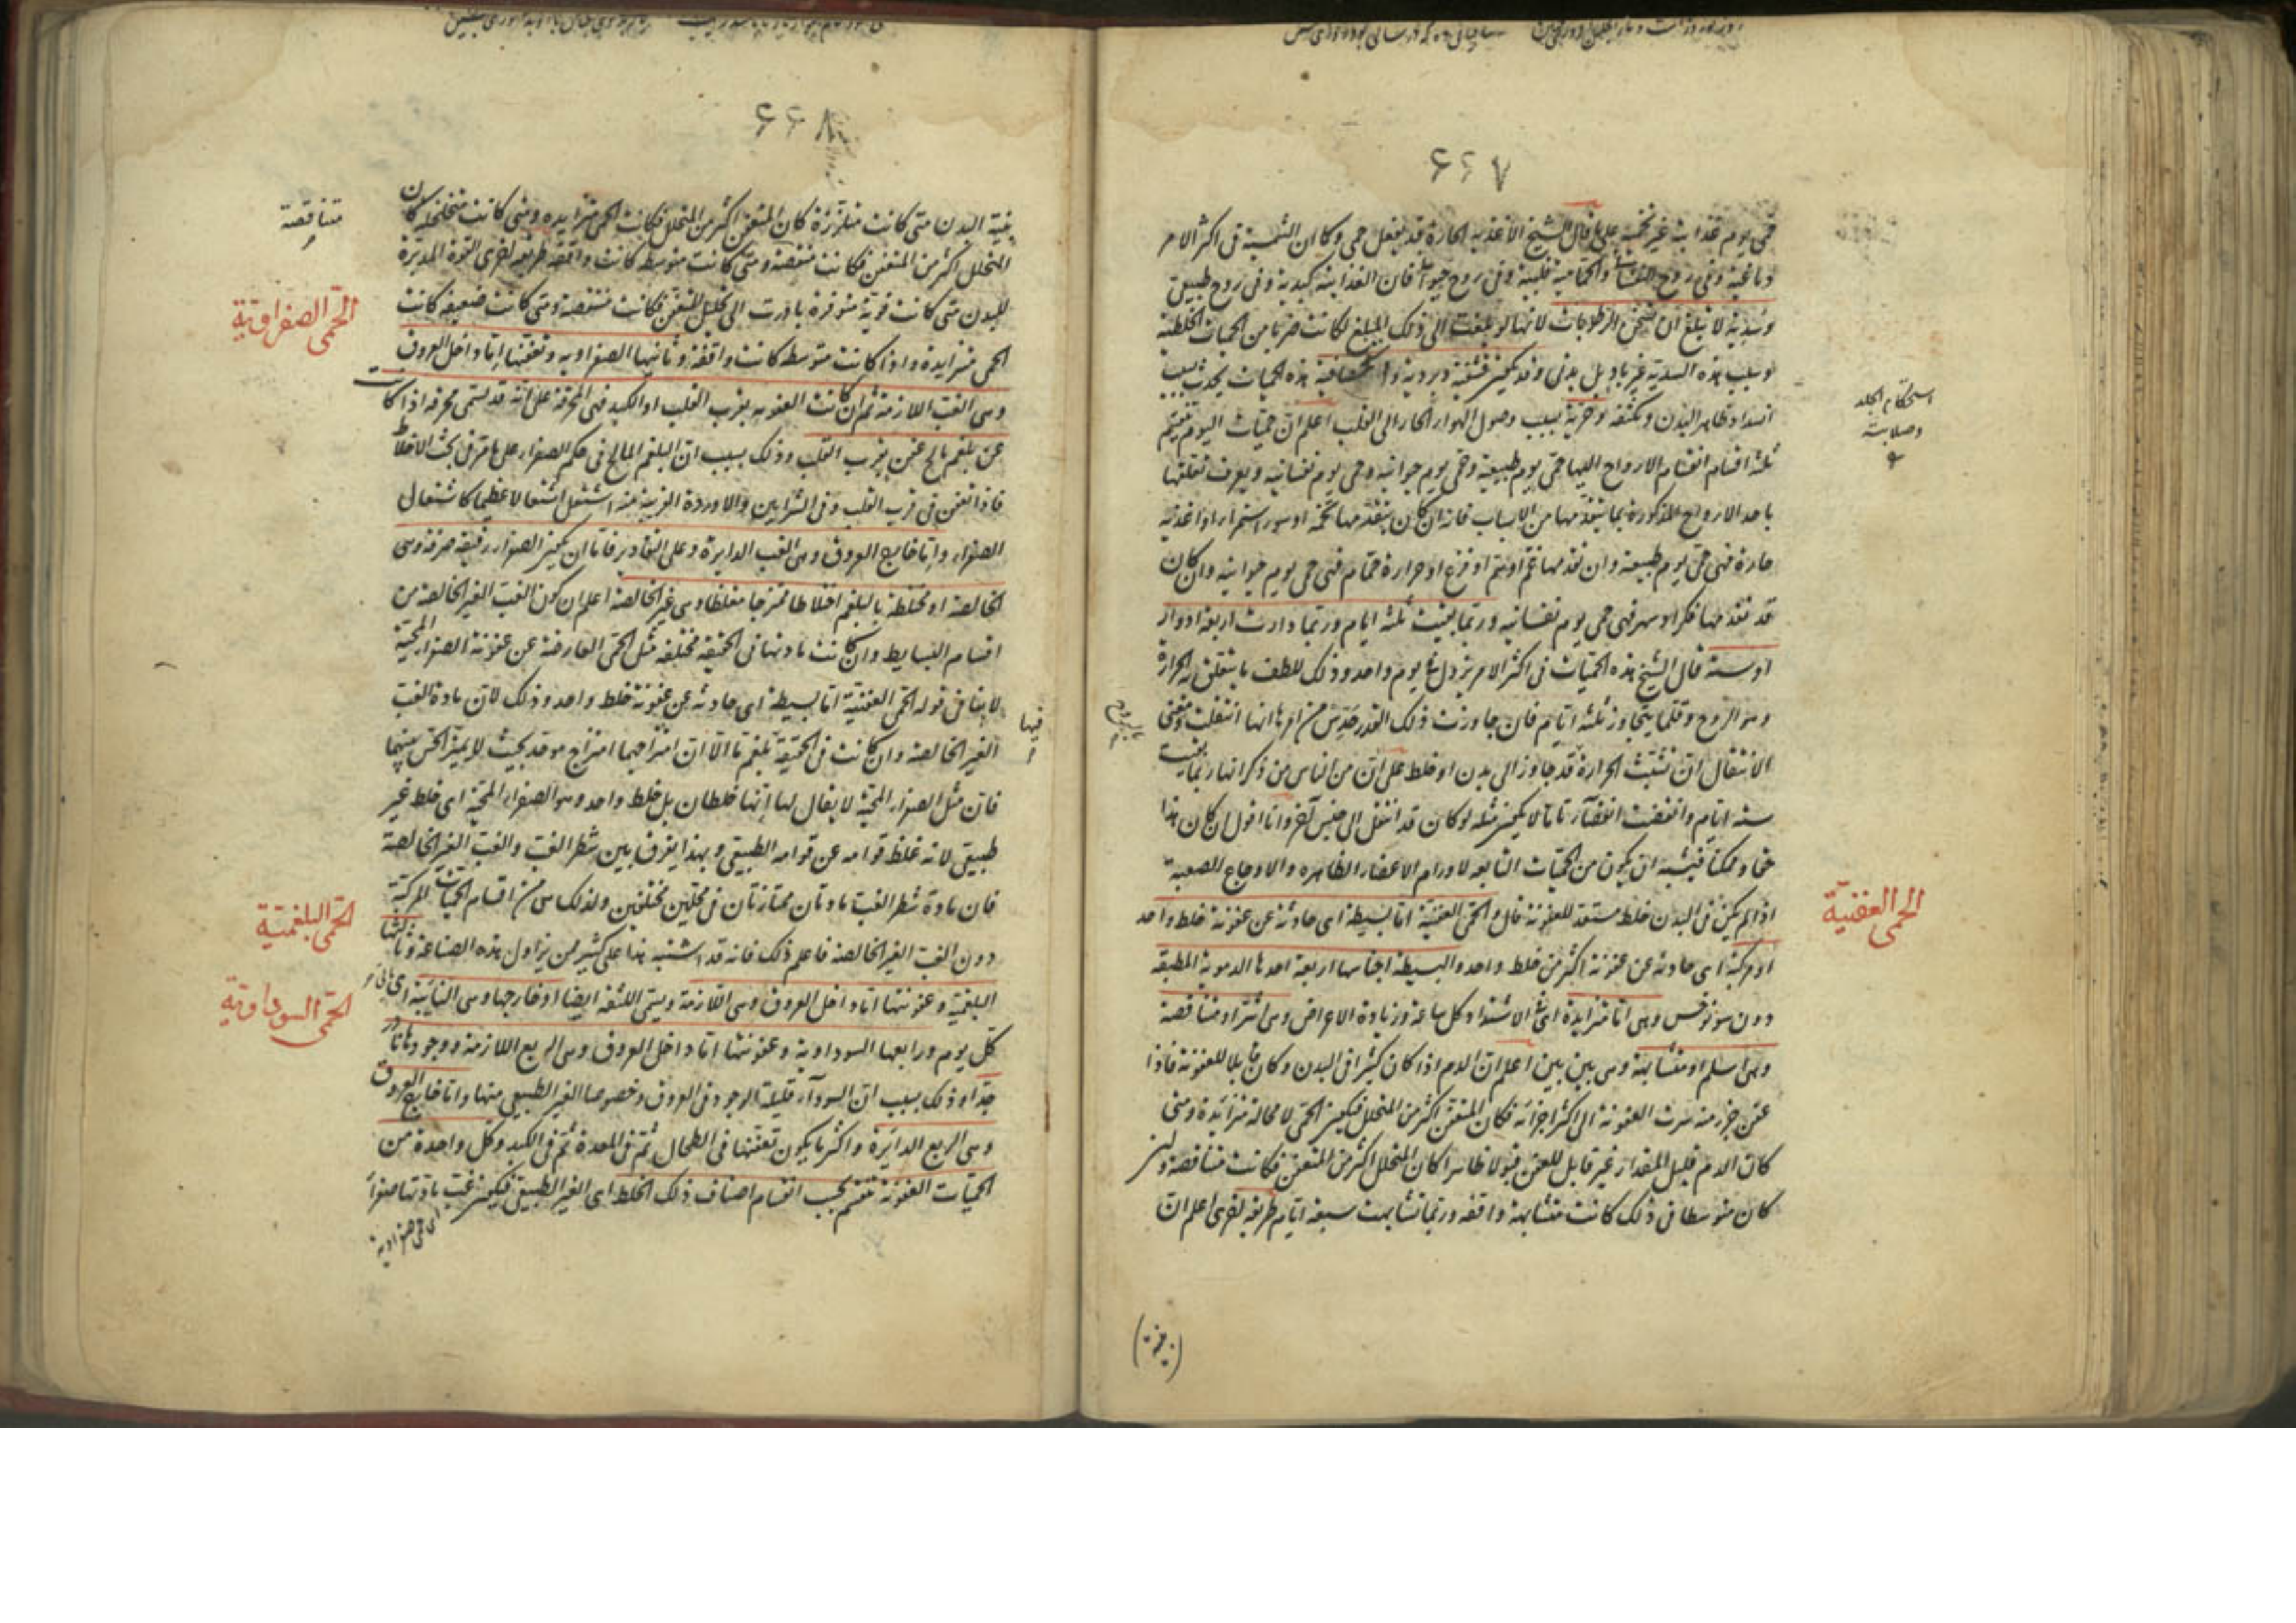 ٦٦٧
حمى يوم غذائية غير تخمية على ما قال الشيخ الاغذية الحارة قد تفعل حمى وكان الشمسية فى اكثر الامر
دماغية وفى روح النفسانى والحمامية قلبية وفى روح حيوانى فان الغذائية كبدية وفى روح طبيعى
وسدية لا تبلغ ان تسخن الرطوبات لانها لو بلغت الى ذلك المبلغ لكانت ضربا من الحميات الخلطية
وسبب هذه السدية غير بادٍ بل بدنى وقد يكون هذه الحميات يحدث بسبب
انسداد ظاهر البدن وتكثفه وحرية بسبب وصول الهواء الحار الى القلب اعلم ان حميات اليوم تنقسم
ثلثة اقسام انقسام الارواح اليها حمى يوم طبيعية وحمى يوم حيوانية وحمى يوم نفسانية ويعرف تعلقها
باحد الارواح المذكورة بما يتقدمها من الاسباب فانه ان كان يتقدمها تخمة او سوء استمراء او اغذية
حارة فهى حمى يوم طبيعية وان تقدمها غم او هم او فزع او حرارة حمام فهى حمى يوم حيوانية وان كان
قد تقدمها فكر او سهر فهى حمى يوم نفسانية وربما بقيت ثلثة ايام وربما دارت اربعة ادوار
او ستة قال الشيخ هذه الحميات فى اكثر الامر يزول فى يوم واحد وذلك للطف ما يتعلق به الحرارة
وهو الروح وقلما يتجاوز ثلثة ايام فان جاوزت ذلك القدر حدس من امرها انها انتقلت ومعنى
الانتقال ان تتشبث الحرارة قد جاوز الى بدن او خلط على ان من الناس من ذكر انها ربما بقيت
ستة ايام وانقضت انقضاء تاما لا يكون مثله لو كان قد انتقل الى جنس آخر وانا اقول ان كان هذا
حقا وممكنا فيشبه ان يكون من الحميات التابعة لاورام الاعضاء الظاهرة والاوجاع الصعبة
اذا لم يكن فى البدن خلط مستعد للعفونة قال والحمى العفنية اما بسيطة اى حادثة عن عفونة خلط واحد
او مركبة اى حادثة عن عفونة اكثر من خلط واحد والبسيطة اجناسها اربعة احدها الدموية المطبقة
دون سونوخس وهى اما متزايدة اى فى الاشتداد كل ساعة وزيادة الاعراض وهى اشر او متناقصة
وهى اسلم او متشابهة وهى بين بين اعلم ان الدم اذا كان كثيرا فى البدن وكان قابلا للعفونة فاذا
عفن جزء منه سرت العفونة الى اكثر اجزائه فكان المتعفن اكثر من المتحلل فيكون الحمى لا محالة متزايدة ومتى
كان الدم قليل المقدار غير قابل للعفن قبولا ظاهرا كان المتحلل اكثر من المتعفن فكانت متناقصة ولئن
كان متوسطا فى ذلك كانت متشابهة واقفة وربما تشابهت سبعة ايام طريقة اخرى اعلم ان
استحكام الجلد
وصلابته
الحمى العفنية
٦٦٨
بنية البدن متى كانت متلززة كان المتعفن اكثر من المتحلل فكانت الحمى متزايدة ومتى كانت متخلخلة كان
المتحلل اكثر من المتعفن فكانت متنقصة ومتى كانت متوسطة كانت واقفة طريقة اخرى القوة المدبرة
للبدن متى كانت قوية متوفرة بادرت الى تحليل المتعفن فكانت متنقصة ومتى كانت ضعيفة كانت
الحمى متزايدة واذا كانت متوسطة كانت واقفة وثانيها الصفراوية وتعفنها اما داخل العروق
وهى الغب اللازمة ثم ان كانت العفونة بقرب القلب او الكبد فهى المحرقة على انه قد تسمى محرقة اذا كانت
عن بلغم مالح عفن بقرب القلب وذلك بسبب ان البلغم المالح فى حكم الصفراء على ما مر فى بحث الاخلاط
فاذا تعفن فى قرب القلب وفى الشرايين والاوردة القريبة منه اشتعل اشتعالا عظيما كاشتعال
الصفراء واما خارج العروق وهى الغب الدايرة وعلى التقادير فاما ان يكون الصفراء رقيقة صرفة وهى
الخالصة او مختلطة بالبلغم اختلاطا ممتزجا مغلظا وهى غير الخالصة اعلم ان كون الغب الغير الخالصة من
اقسام البسايط وان كانت مادتها فى الحقيقة مختلفة مثل الحمى العارضة عن عفونة الصفراء المحية
لا ينافى قوله الحمى العفنية اما بسيطة اى حادثة عن عفونة خلط واحد وذلك لان مادة الغب
الغير الخالصة وان كانت فى الحقيقة بلغم ما الا ان امتزاجهما امتزاج موحد بحيث لا يميز الحس بينهما
فان مثل الصفراء المحية لا يقال لها انها خلطان بل خلط واحد وهو الصفراء المحية اى خلط غير
طبيعى لانه غلظ قوامه عن قوامه الطبيعى وبهذا يفرق بين شطر الغب والغب الغير الخالصة
فان مادة شطر الغب مادتان ممتازتان فى محلين مختلفين ولذلك هى من اقسام الحميات المركبة
دون الغب الغير الخالصة فاعلم ذلك فانه قد اشتبه هذا على كثير ممن يزاول هذه الصناعة وثالثها
البلغمية وعفونتها اما داخل العروق وهى اللازمة ويسمى اللثقة ايضا او خارجها وهى النايبة اى
كل يوم ورابعها السوداوية وعفونتها اما داخل العروق وهى الربع اللازمة ووجودها نادر
جدا وذلك بسبب ان السوداء قليلة الوجود فى العروق وخصوصا الغير الطبيعى منها واما خارج العروق
وهى الربع الدايرة واكثر ما يكون تعفنها فى الطحال ثم فى المعدة ثم فى الكبد وكل واحدة من
الحميات العفونة تنقسم بحسب انقسام اصناف ذلك الخلط اى الغير الطبيعى فيكون غب مادتها صفراء
متناقصة
الحمى الصفراوية
فيها
الحمى البلغمية
الحمى السوداوية